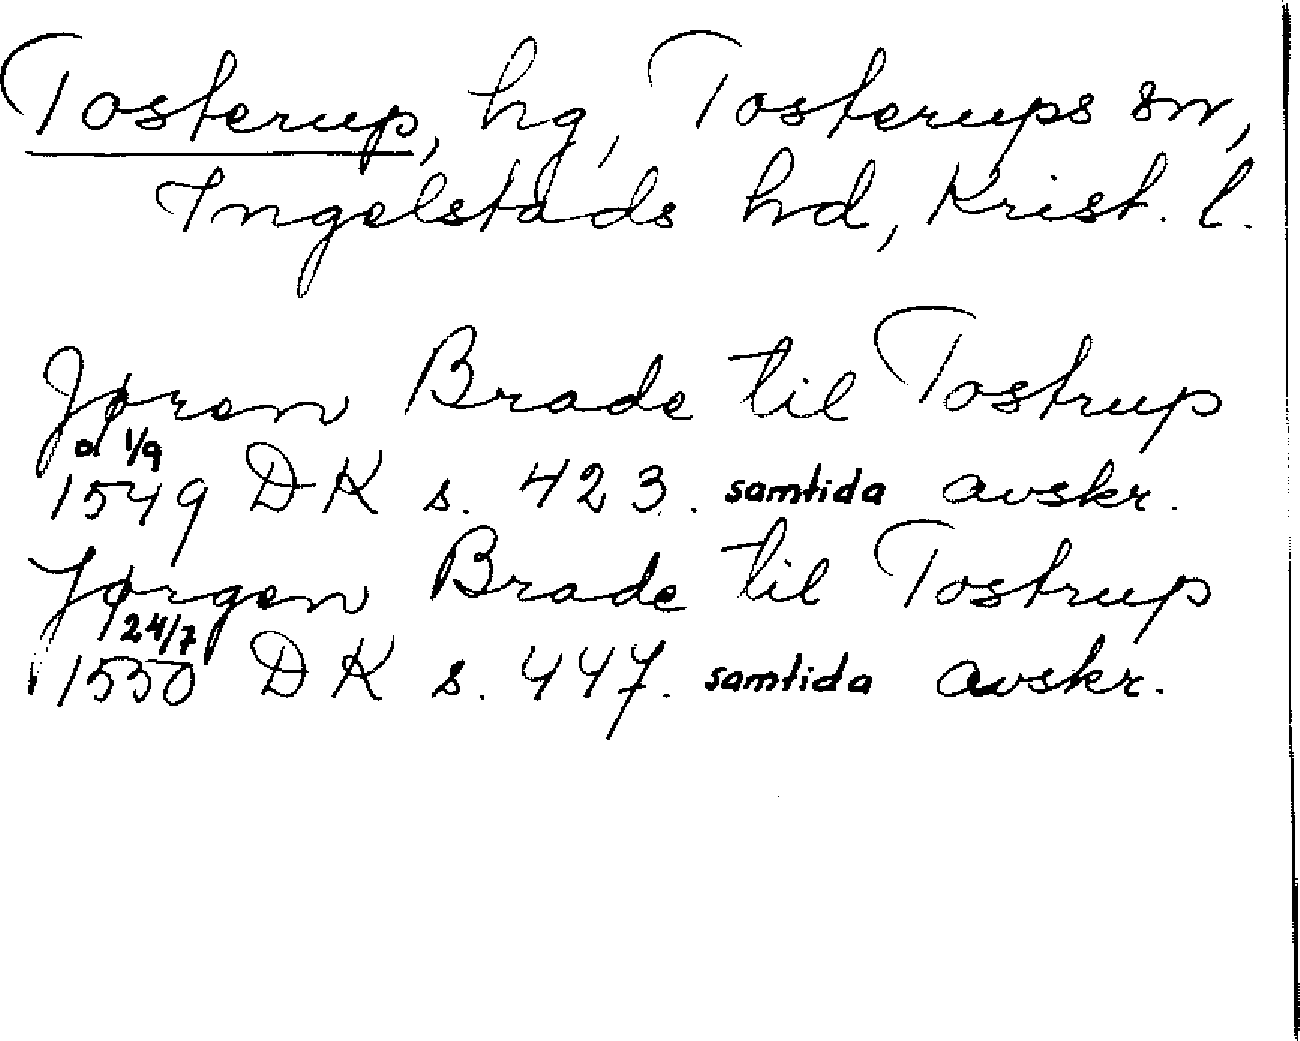 Tosterup, hg, Tosterups sn,
Ingelstads hd, Krist. l.
Jøren Brade til Tostrup
1/9
1549 DK s. 423. samtida avskr.
Jørgen Brade til Tostrup
24/7
1550 DK s. 447. samtida avskr.